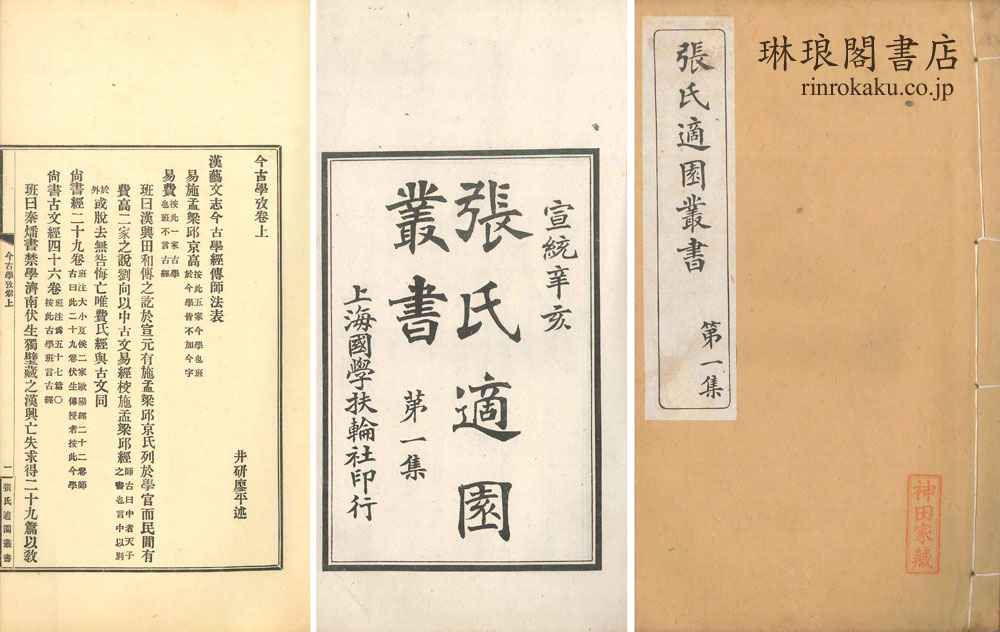 琳琅閣書店
rinrokaku.co.jp
張氏適園叢書
第一集
神田家藏
宣統辛亥
張氏適園
叢書 第一集
上海國學扶輪社印行
今古學攷卷上
井研廖平述
漢藝文志今古學經傳師法表
易施孟梁邱京高按此五家今學也班於今學皆不加今字
易費按此一家古學也班不言古經
班曰漢興田和傳之訖於宣元有施孟梁邱京氏列於學官而民間有
費高二家之說劉向以中古文易經校施孟梁邱經師古曰中者天子之書也言中以別
於外或脫去無咎悔亡唯費氏經與古文同
尙書經二十九卷班注大小夏侯二家歐陽經二十二卷師古曰此二十九卷伏生傳授者按此今學
尙書古文經四十六卷班注爲五十七篇〇按此古學班言古經
班曰秦燔書禁學濟南伏生獨壁藏之漢興亡失求得二十九篇以敎
今古學攷卷上
二
張氏適園叢書